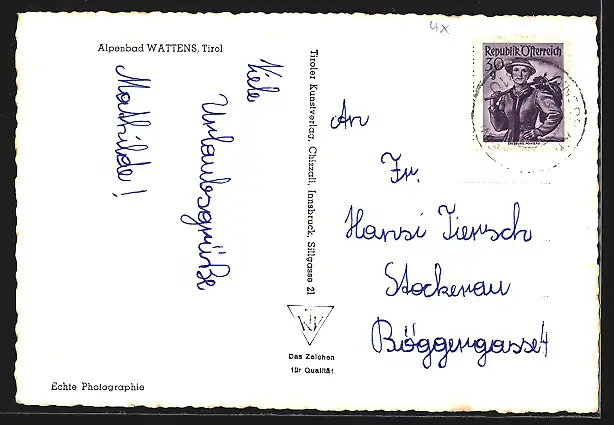 4x
Alpenbad WATTENS, Tirol
Viele
Urlaubsgrüße
Mathilde!
Tiroler Kunstverlag, Chizzali, Innsbruck, Sillgasse 21
Republik Österreich
30
g
An
Fr.
Hansi Tiersch
Stockerau
Böggergasse 4
TKV
Das Zeichen
für Qualität
Echte Photographie